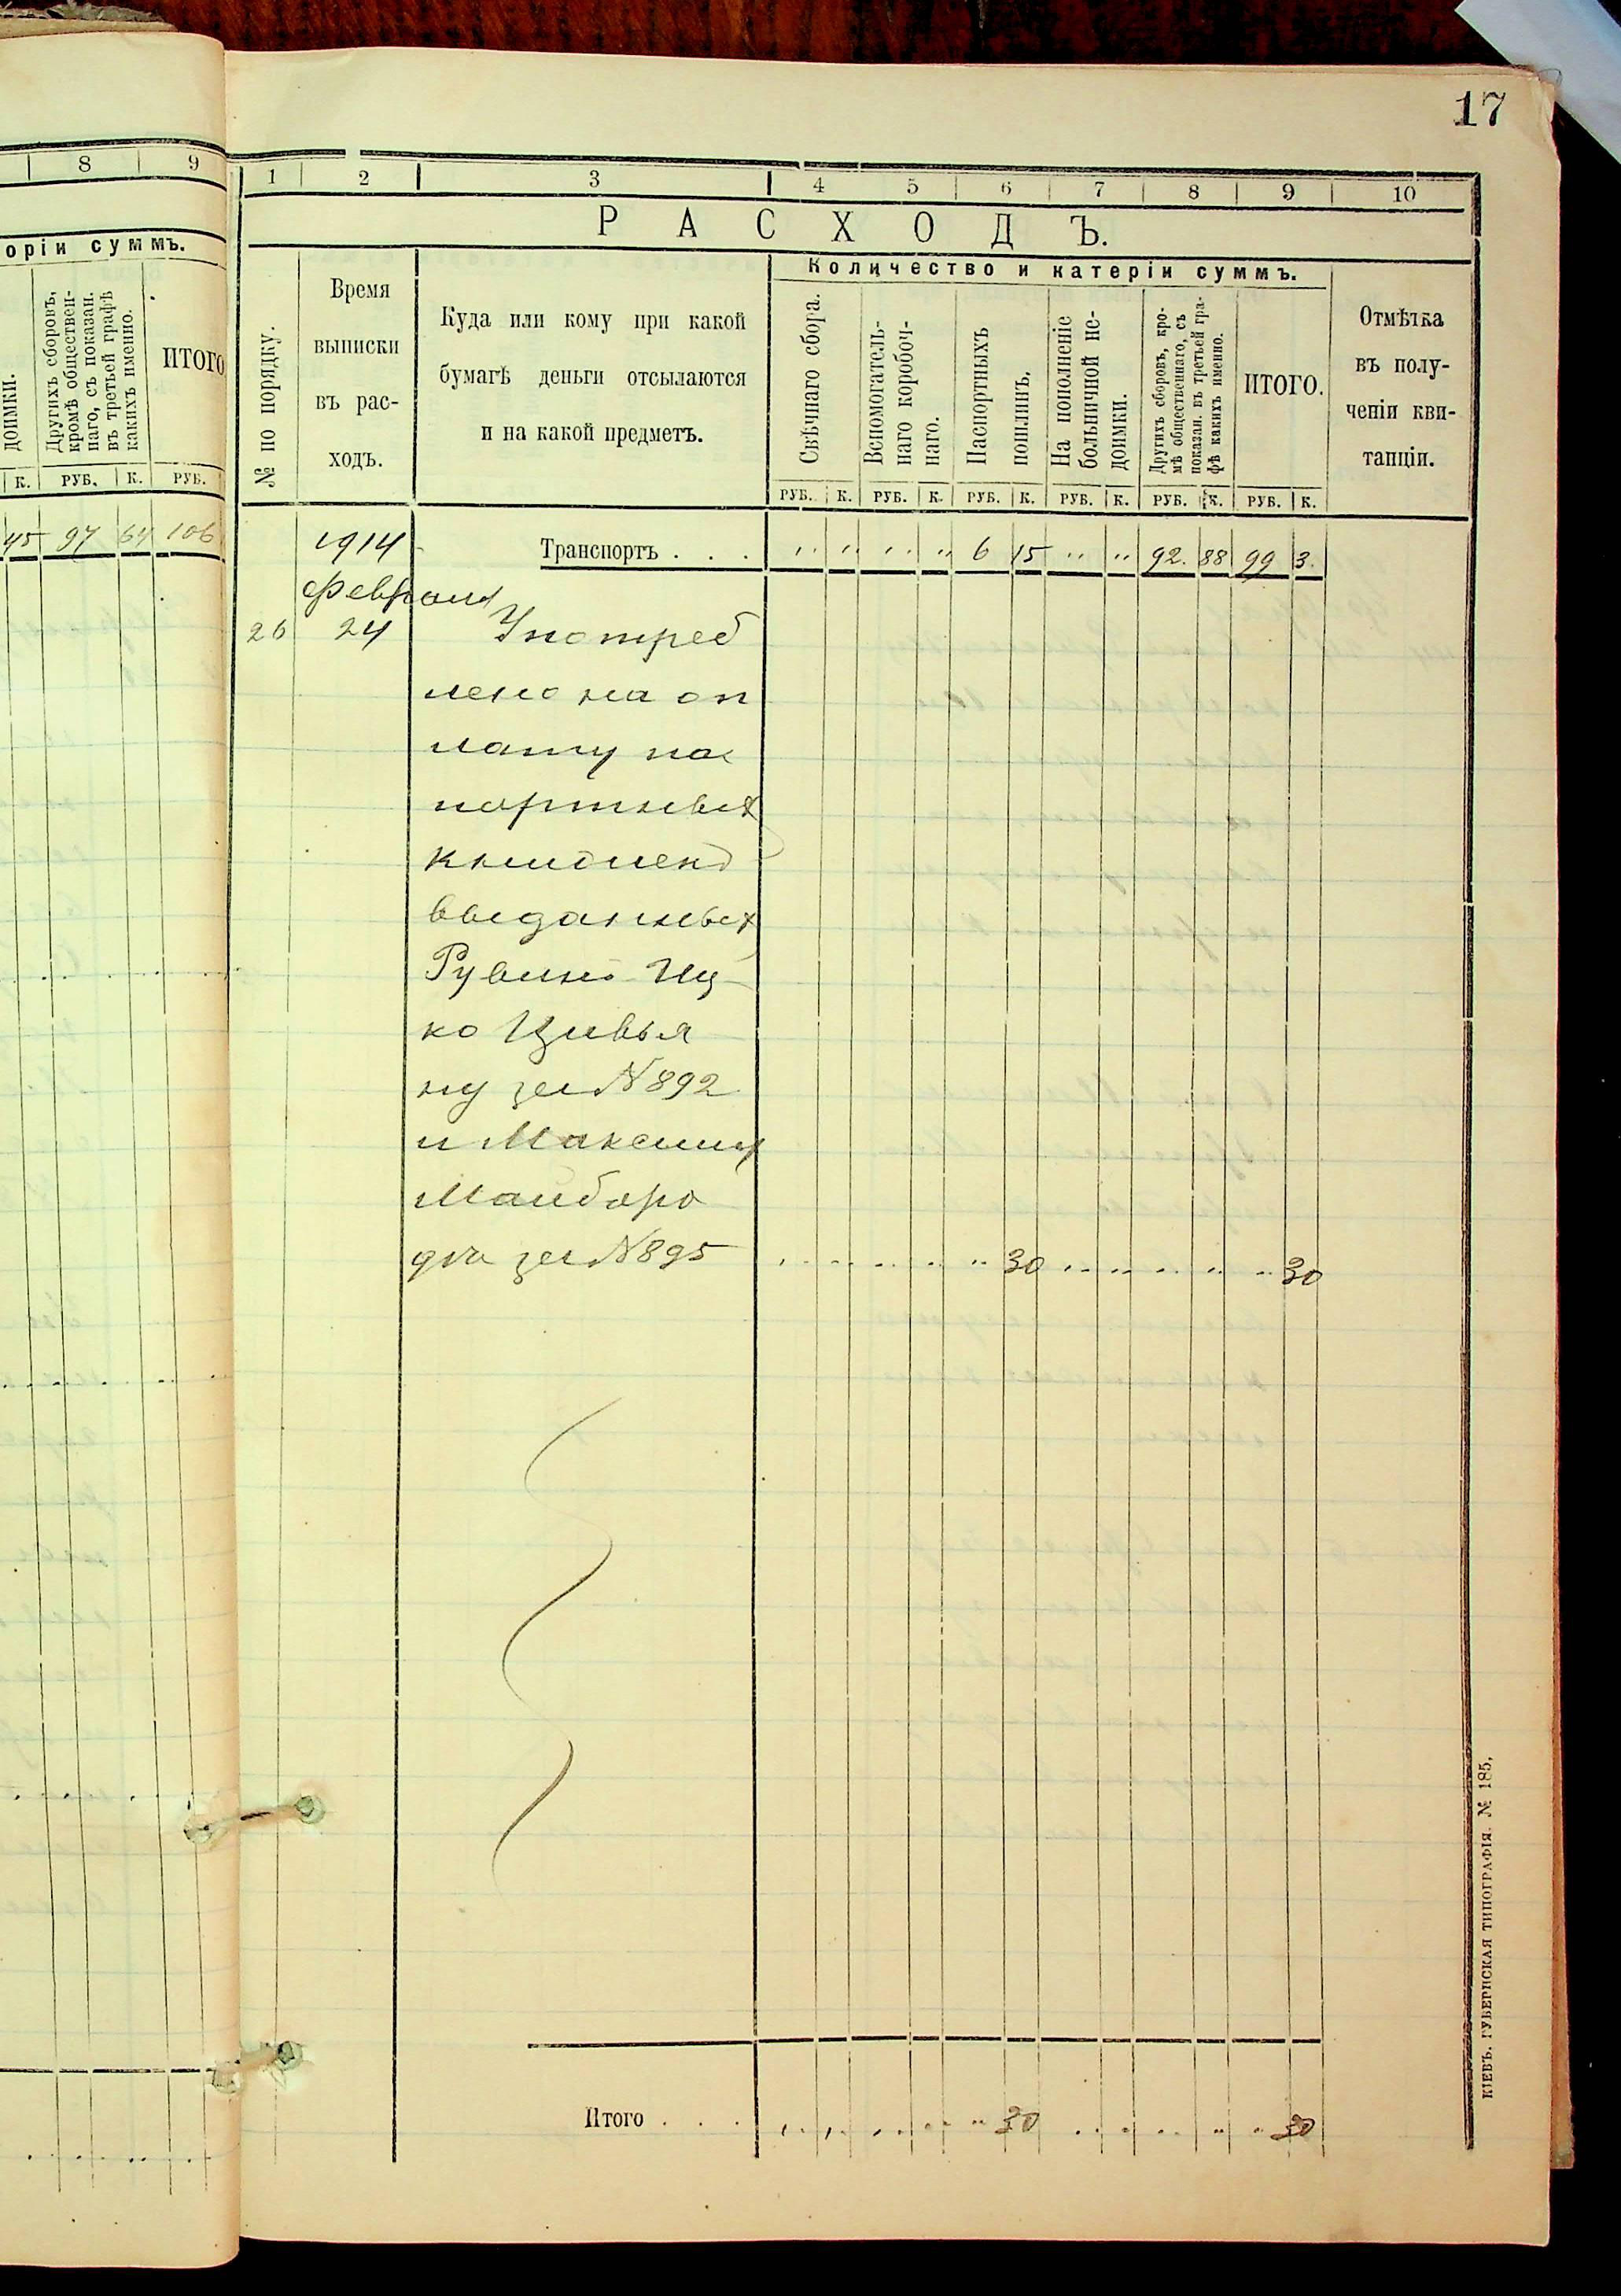 17
8 9
оріи суммъ.
доимки.
Другихъ сборовъ,
кромѣ обществен-
наго, съ показан.
въ третьей графѣ
какихъ именно.
ИТОГО
К. РУБ. К. РУБ.
45 97 64 106
1 2 3 4 5 6 7 8 9 10
РАСХОДЪ.
№ по порядку.
Время
выписки
въ рас-
ходъ.
Куда или кому при какой
бумагѣ деньги отсылаются
и на какой предметъ.
Количество и катеріи суммъ.
Свѣчнаго сбора.
Вспомогатель-
наго коробоч-
наго.
Паспортныхъ
пошлинъ.
На пополненіе
больничной не-
доимки.
Другихъ сборовъ, кро-
мѣ общественнаго, съ
показан. въ третьей гра-
фѣ какихъ именно.
ИТОГО.
Отмѣтка
въ полу-
ченіи кви-
танціи.
РУБ. К. РУБ. К. РУБ. К. РУБ. К. РУБ. К. РУБ. К.
1914 Транспортъ . . . „ „ „ „ 6 15 „ „ 92. 88 99 3.
Февраля
26 24 Употреб
лено на оп
лату пас
портныхъ
книжекъ
выданныхъ
Рувинъ Иц-
ко Цивья
ну за №892
и Максиму
Майборо
да за №895 „ „ „ „ „ 30 „ „ „ „ „ 30
Итого . . . „ „ „ „ „ 30 „ „ „ „ „ 30
КІЕВЪ. ГУБЕРНСКАЯ ТИПОГРАФІЯ. № 185.